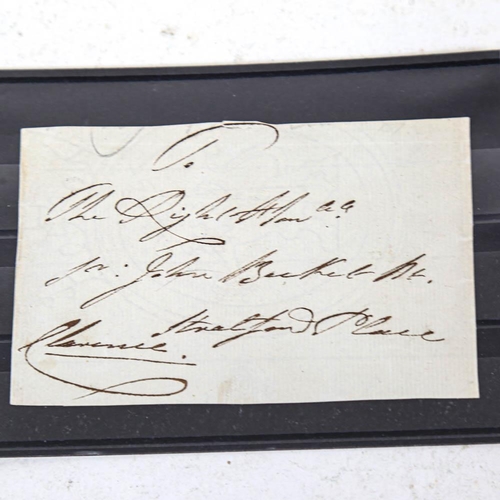 To
The Right Hon.ble
Sr: John Beckett Bt.
Stratford Place
Clarence.